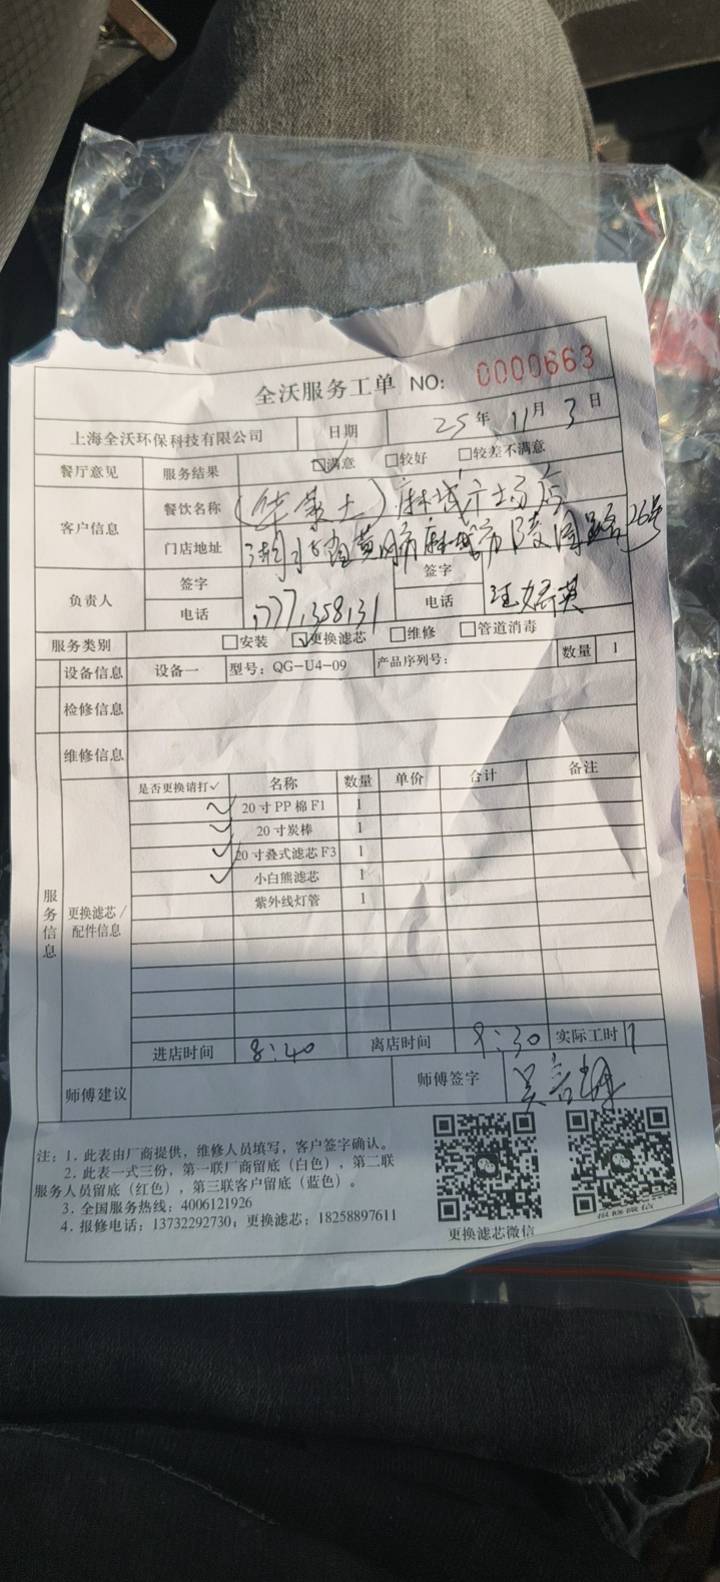 全沃服务工单 NO: 0000663
上海全沃环保科技有限公司 日期 25年 11月 3日
餐厅意见 服务结果 ☑满意 □较好 □较差不满意
客户信息 餐饮名称 (华莱士) 麻城广场店
门店地址 湖北省黄冈市麻城市陵园路26号
负责人 签字 签字
电话 电话 汪
服务类别 □安装 ☑更换滤芯 □维修 □管道消毒
设备信息 设备一 型号:QG-U4-09 产品序列号: 数量 1
检修信息
维修信息
服务信息
更换滤芯/配件信息
是否更换请打✓ 名称 数量 单价 合计 备注
✓ 20寸PP棉F1 1
✓ 20寸炭棒 1
✓ 20寸叠式滤芯F3 1
✓ 小白熊滤芯 1
紫外线灯管 1
进店时间 8:40 离店时间 9:30 实际工时 1
师傅建议 师傅签字 吴
注:1. 此表由厂商提供,维修人员填写,客户签字确认。
2. 此表一式三份,第一联厂商留底(白色),第二联
服务人员留底(红色),第三联客户留底(蓝色)。
3. 全国服务热线:4006121926
4. 报修电话:13732292730;更换滤芯:18258897611
更换滤芯微信 报修微信